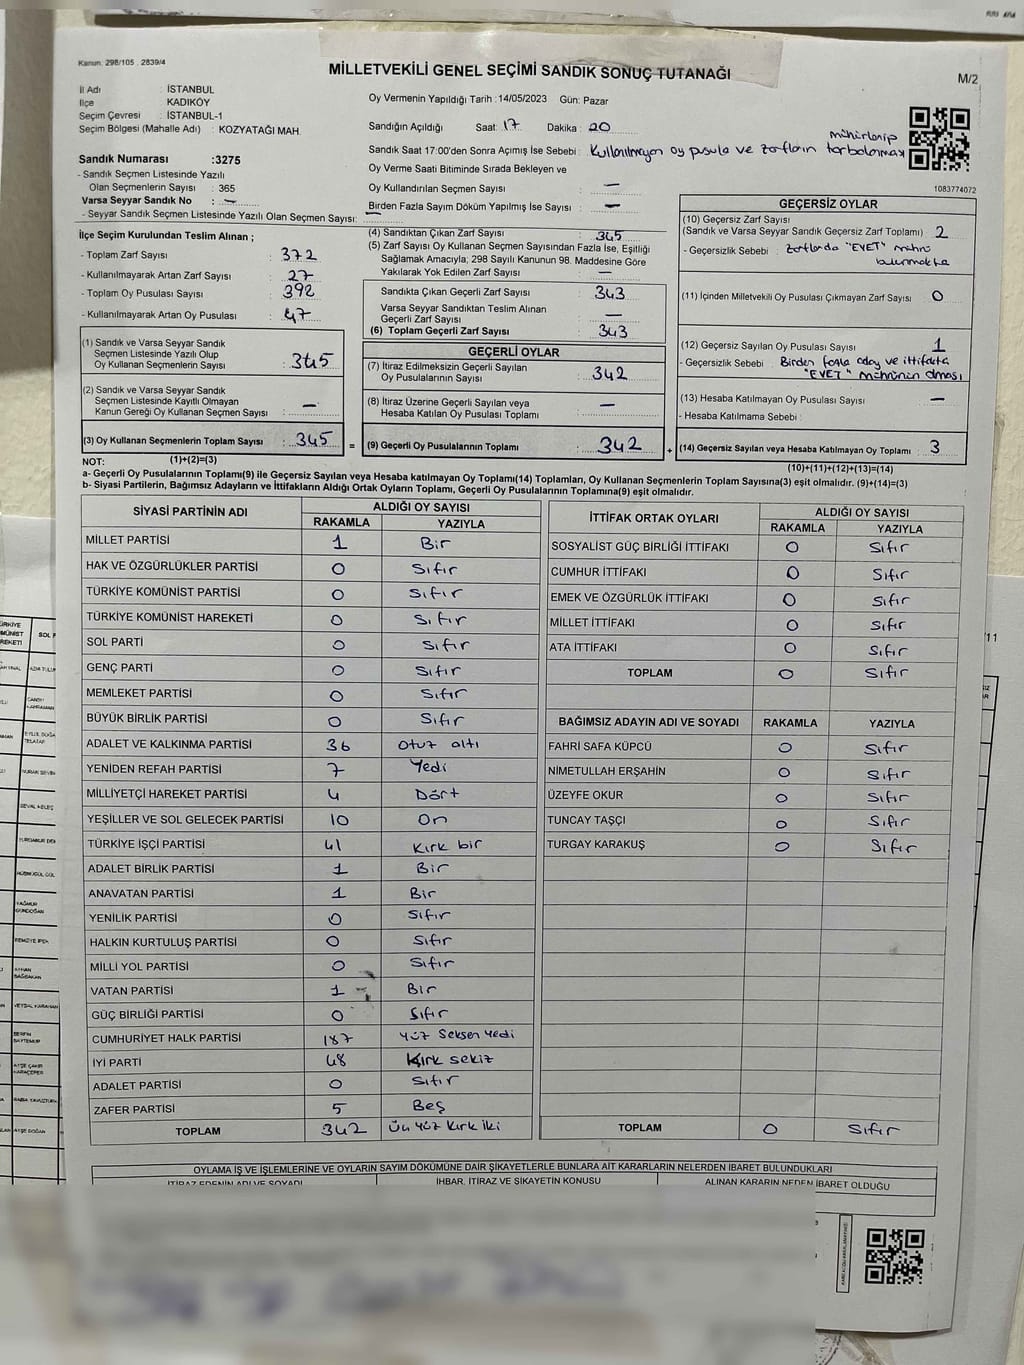 Kanun: 298/105 , 2839/4
MİLLETVEKİLİ GENEL SEÇİMİ SANDIK SONUÇ TUTANAĞI
M/2
İl Adı : İSTANBUL
İlçe : KADIKÖY
Seçim Çevresi : İSTANBUL-1
Seçim Bölgesi (Mahalle Adı) : KOZYATAĞI MAH.
Oy Vermenin Yapıldığı Tarih :14/05/2023 Gün: Pazar
Sandığın Açıldığı Saat: 17 Dakika : 20
Sandık Saat 17:00'den Sonra Açımış İse Sebebi : Kullanılmayan oy pusula ve zarfların mühürlenip torbalanması
Oy Verme Saati Bitiminde Sırada Bekleyen ve
Oy Kullandırılan Seçmen Sayısı : —
Birden Fazla Sayım Döküm Yapılmış İse Sayısı : —
1083774072
Sandık Numarası :3275
- Sandık Seçmen Listesinde Yazılı
Olan Seçmenlerin Sayısı : 365
Varsa Seyyar Sandık No : —
- Seyyar Sandık Seçmen Listesinde Yazılı Olan Seçmen Sayısı: —
İlçe Seçim Kurulundan Teslim Alınan ;
- Toplam Zarf Sayısı : 372
- Kullanılmayarak Artan Zarf Sayısı : 27
- Toplam Oy Pusulası Sayısı : 392
- Kullanılmayarak Artan Oy Pusulası : 47
(1) Sandık ve Varsa Seyyar Sandık
Seçmen Listesinde Yazılı Olup
Oy Kullanan Seçmenlerin Sayısı : 345
(2) Sandık ve Varsa Seyyar Sandık
Seçmen Listesinde Kayıtlı Olmayan
Kanun Gereği Oy Kullanan Seçmen Sayısı : —
(3) Oy Kullanan Seçmenlerin Toplam Sayısı : 345 =
(4) Sandıktan Çıkan Zarf Sayısı : 345
(5) Zarf Sayısı Oy Kullanan Seçmen Sayısından Fazla İse, Eşitliği
Sağlamak Amacıyla, 298 Sayılı Kanunun 98. Maddesine Göre
Yakılarak Yok Edilen Zarf Sayısı : —
Sandıkta Çıkan Geçerli Zarf Sayısı : 343
Varsa Seyyar Sandıktan Teslim Alınan
Geçerli Zarf Sayısı : —
(6) Toplam Geçerli Zarf Sayısı : 343
GEÇERLİ OYLAR
(7) İtiraz Edilmeksizin Geçerli Sayılan
Oy Pusulalarının Sayısı : 342
(8) İtiraz Üzerine Geçerli Sayılan veya
Hesaba Katılan Oy Pusulası Toplamı : —
(9) Geçerli Oy Pusulalarının Toplamı : 342 +
GEÇERSİZ OYLAR
(10) Geçersiz Zarf Sayısı
(Sandık ve Varsa Seyyar Sandık Geçersiz Zarf Toplamı) : 2
- Geçersizlik Sebebi : Zarflarda "EVET" mührü
bulunmakta
(11) İçinden Milletvekili Oy Pusulası Çıkmayan Zarf Sayısı : 0
(12) Geçersiz Sayılan Oy Pusulası Sayısı : 1
- Geçersizlik Sebebi : Birden fazla aday ve ittifakta
"EVET" mührünün olması
(13) Hesaba Katılmayan Oy Pusulası Sayısı : —
- Hesaba Katılmama Sebebi :
(14) Geçersiz Sayılan veya Hesaba Katılmayan Oy Toplamı : 3
NOT: (1)+(2)=(3)
(10)+(11)+(12)+(13)=(14)
a- Geçerli Oy Pusulalarının Toplamı(9) ile Geçersiz Sayılan veya Hesaba katılmayan Oy Toplamı(14) Toplamları, Oy Kullanan Seçmenlerin Toplam Sayısına(3) eşit olmalıdır. (9)+(14)=(3)
b- Siyasi Partilerin, Bağımsız Adayların ve İttifakların Aldığı Ortak Oyların Toplamı, Geçerli Oy Pusulalarının Toplamına(9) eşit olmalıdır.
SİYASİ PARTİNİN ADI ALDIĞI OY SAYISI
RAKAMLA YAZIYLA
MİLLET PARTİSİ 1 Bir
HAK VE ÖZGÜRLÜKLER PARTİSİ 0 Sıfır
TÜRKİYE KOMÜNİST PARTİSİ 0 Sıfır
TÜRKİYE KOMÜNİST HAREKETİ 0 Sıfır
SOL PARTİ 0 Sıfır
GENÇ PARTİ 0 Sıfır
MEMLEKET PARTİSİ 0 Sıfır
BÜYÜK BİRLİK PARTİSİ 0 Sıfır
ADALET VE KALKINMA PARTİSİ 36 Otuz altı
YENİDEN REFAH PARTİSİ 7 Yedi
MİLLİYETÇİ HAREKET PARTİSİ 4 Dört
YEŞİLLER VE SOL GELECEK PARTİSİ 10 On
TÜRKİYE İŞÇİ PARTİSİ 41 Kırk bir
ADALET BİRLİK PARTİSİ 1 Bir
ANAVATAN PARTİSİ 1 Bir
YENİLİK PARTİSİ 0 Sıfır
HALKIN KURTULUŞ PARTİSİ 0 Sıfır
MİLLİ YOL PARTİSİ 0 Sıfır
VATAN PARTİSİ 1 Bir
GÜÇ BİRLİĞİ PARTİSİ 0 Sıfır
CUMHURİYET HALK PARTİSİ 187 Yüz Seksen Yedi
İYİ PARTİ 48 Kırk sekiz
ADALET PARTİSİ 0 Sıfır
ZAFER PARTİSİ 5 Beş
TOPLAM 342 Üç yüz Kırk iki
İTTİFAK ORTAK OYLARI ALDIĞI OY SAYISI
RAKAMLA YAZIYLA
SOSYALİST GÜÇ BİRLİĞİ İTTİFAKI 0 Sıfır
CUMHUR İTTİFAKI 0 Sıfır
EMEK VE ÖZGÜRLÜK İTTİFAKI 0 Sıfır
MİLLET İTTİFAKI 0 Sıfır
ATA İTTİFAKI 0 Sıfır
TOPLAM 0 Sıfır
BAĞIMSIZ ADAYIN ADI VE SOYADI RAKAMLA YAZIYLA
FAHRİ SAFA KÜPCÜ 0 Sıfır
NİMETULLAH ERŞAHİN 0 Sıfır
ÜZEYFE OKUR 0 Sıfır
TUNCAY TAŞÇI 0 Sıfır
TURGAY KARAKUŞ 0 Sıfır
TOPLAM 0 Sıfır
OYLAMA İŞ VE İŞLEMLERİNE VE OYLARIN SAYIM DÖKÜMÜNE DAİR ŞİKAYETLERLE BUNLARA AİT KARARLARIN NELERDEN İBARET BULUNDUKLARI
İTİRAZ EDENİN ADI VE SOYADI İHBAR, İTİRAZ VE ŞİKAYETİN KONUSU ALINAN KARARIN NEDEN İBARET OLDUĞU